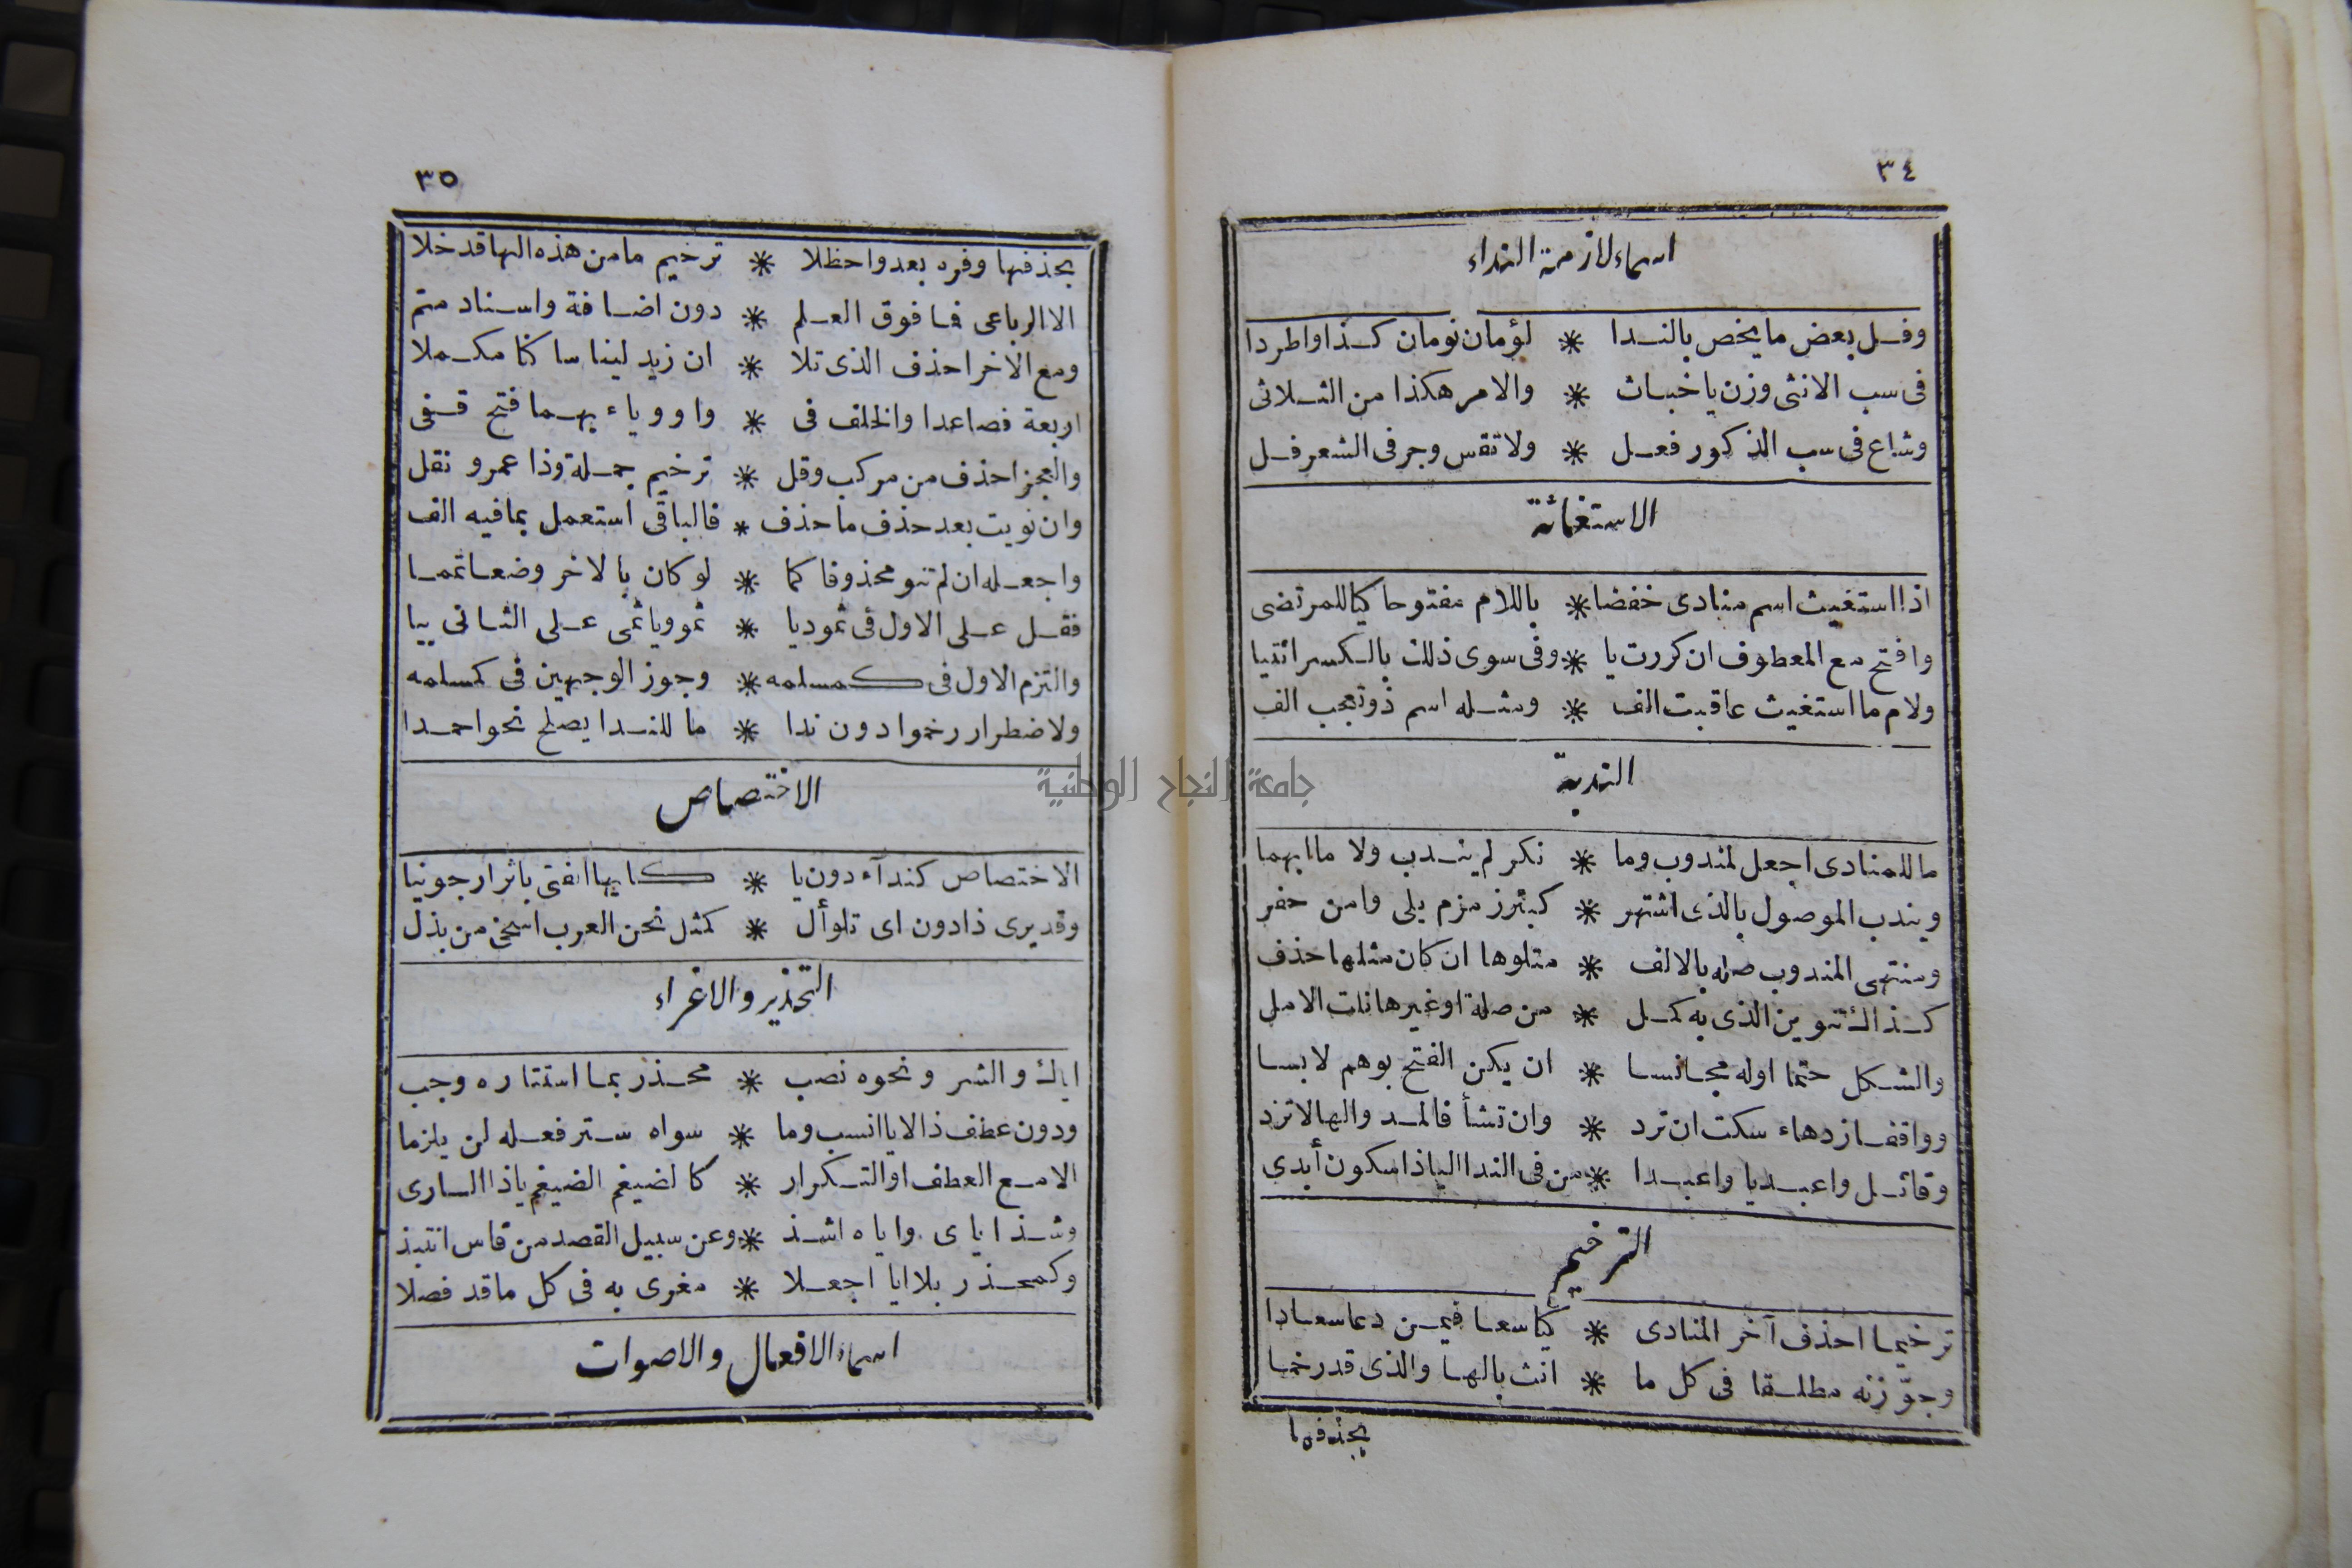 ٣٤
اسماء لازمة النداء
وفل بعض ما يخص بالندا * لؤمان نومان كذا واطردا
فى سب الانثى وزن يا خباث * والامر هكذا من الثلاثى
وشاع فى سب الذكور فعل * ولا تقس وجر فى الشعر فل
الاستغاثة
اذا استغيث اسم منادى خفضا * باللام مفتوحا كيا للمرتضى
وافتح مع المعطوف ان كررت يا * وفى سوى ذلك بالكسر ائتيا
ولام ما استغيث عاقبت الف * ومثله اسم ذو تعجب الف
الندبة
ما للمنادى اجعل لمندوب وما * نكر لم يندب ولا ما ابهما
ويندب الموصول بالذى اشتهر * كبئر زمزم يلى وامن حفر
ومنتهى المندوب صله بالالف * متلوها ان كان مثلها حذف
كذاك تنوين الذى به كمل * من صلة او غيرها نلت الامل
والشكل حتما اوله مجانسا * ان يكن الفتح بوهم لابسا
وواقفا زد هاء سكت ان ترد * وان تشأ فالمد والها لا تزد
وقائل واعبديا واعبدا * من فى الندا اليا ذا سكون أبدى
الترخيم
ترخيما احذف آخر المنادى * كيا سعا فيمن دعا سعادا
وجوّزنه مطلقا فى كل ما * انث بالها والذى قد رخما
بحذفها
٣٥
بحذفها وفره بعد واحظلا * ترخيم ما من هذه الها قد خلا
الا الرباعى فما فوق العلم * دون اضافة واسناد متم
ومع الاخر احذف الذى تلا * ان زيد لينا ساكنا مكملا
اربعة فصاعدا والخلف فى * واو وياء بهما فتح قفى
والعجز احذف من مركب وقل * ترخيم جملة وذا عمرو نقل
وان نويت بعد حذف ما حذف * فالباقى استعمل بما فيه الف
واجعله ان لم تنو محذوفا كما * لو كان بالاخر وضعا تمما
فقل على الاول فى ثمود يا * ثمو ويا ثمى على الثانى بيا
والتزم الاول فى كمسلمه * وجوز الوجهين فى كمسلمه
ولاضطرار رخموا دون ندا * ما للندا يصلح نحو احمدا
الاختصاص
الاختصاص كندآء دون يا * كايها الفتى باثر ارجونيا
وقد يرى ذا دون اى تلو أل * كمثل نحن العرب اسخى من بذل
التحذير والاغراء
اياك والشر ونحوه نصب * محذر بما استتاره وجب
ودون عطف ذا لايا انسب وما * سواه ستر فعله لن يلزما
الا مع العطف او التكرار * كالضيغم الضيغم ياذا السارى
وشذ اياى واياه اشذ * وعن سبيل القصد من قاس انتبذ
وكمحذر بلا ايا اجعلا * مغرى به فى كل ما قد فصلا
اسماء الافعال والاصوات
جامعة النجاح الوطنية